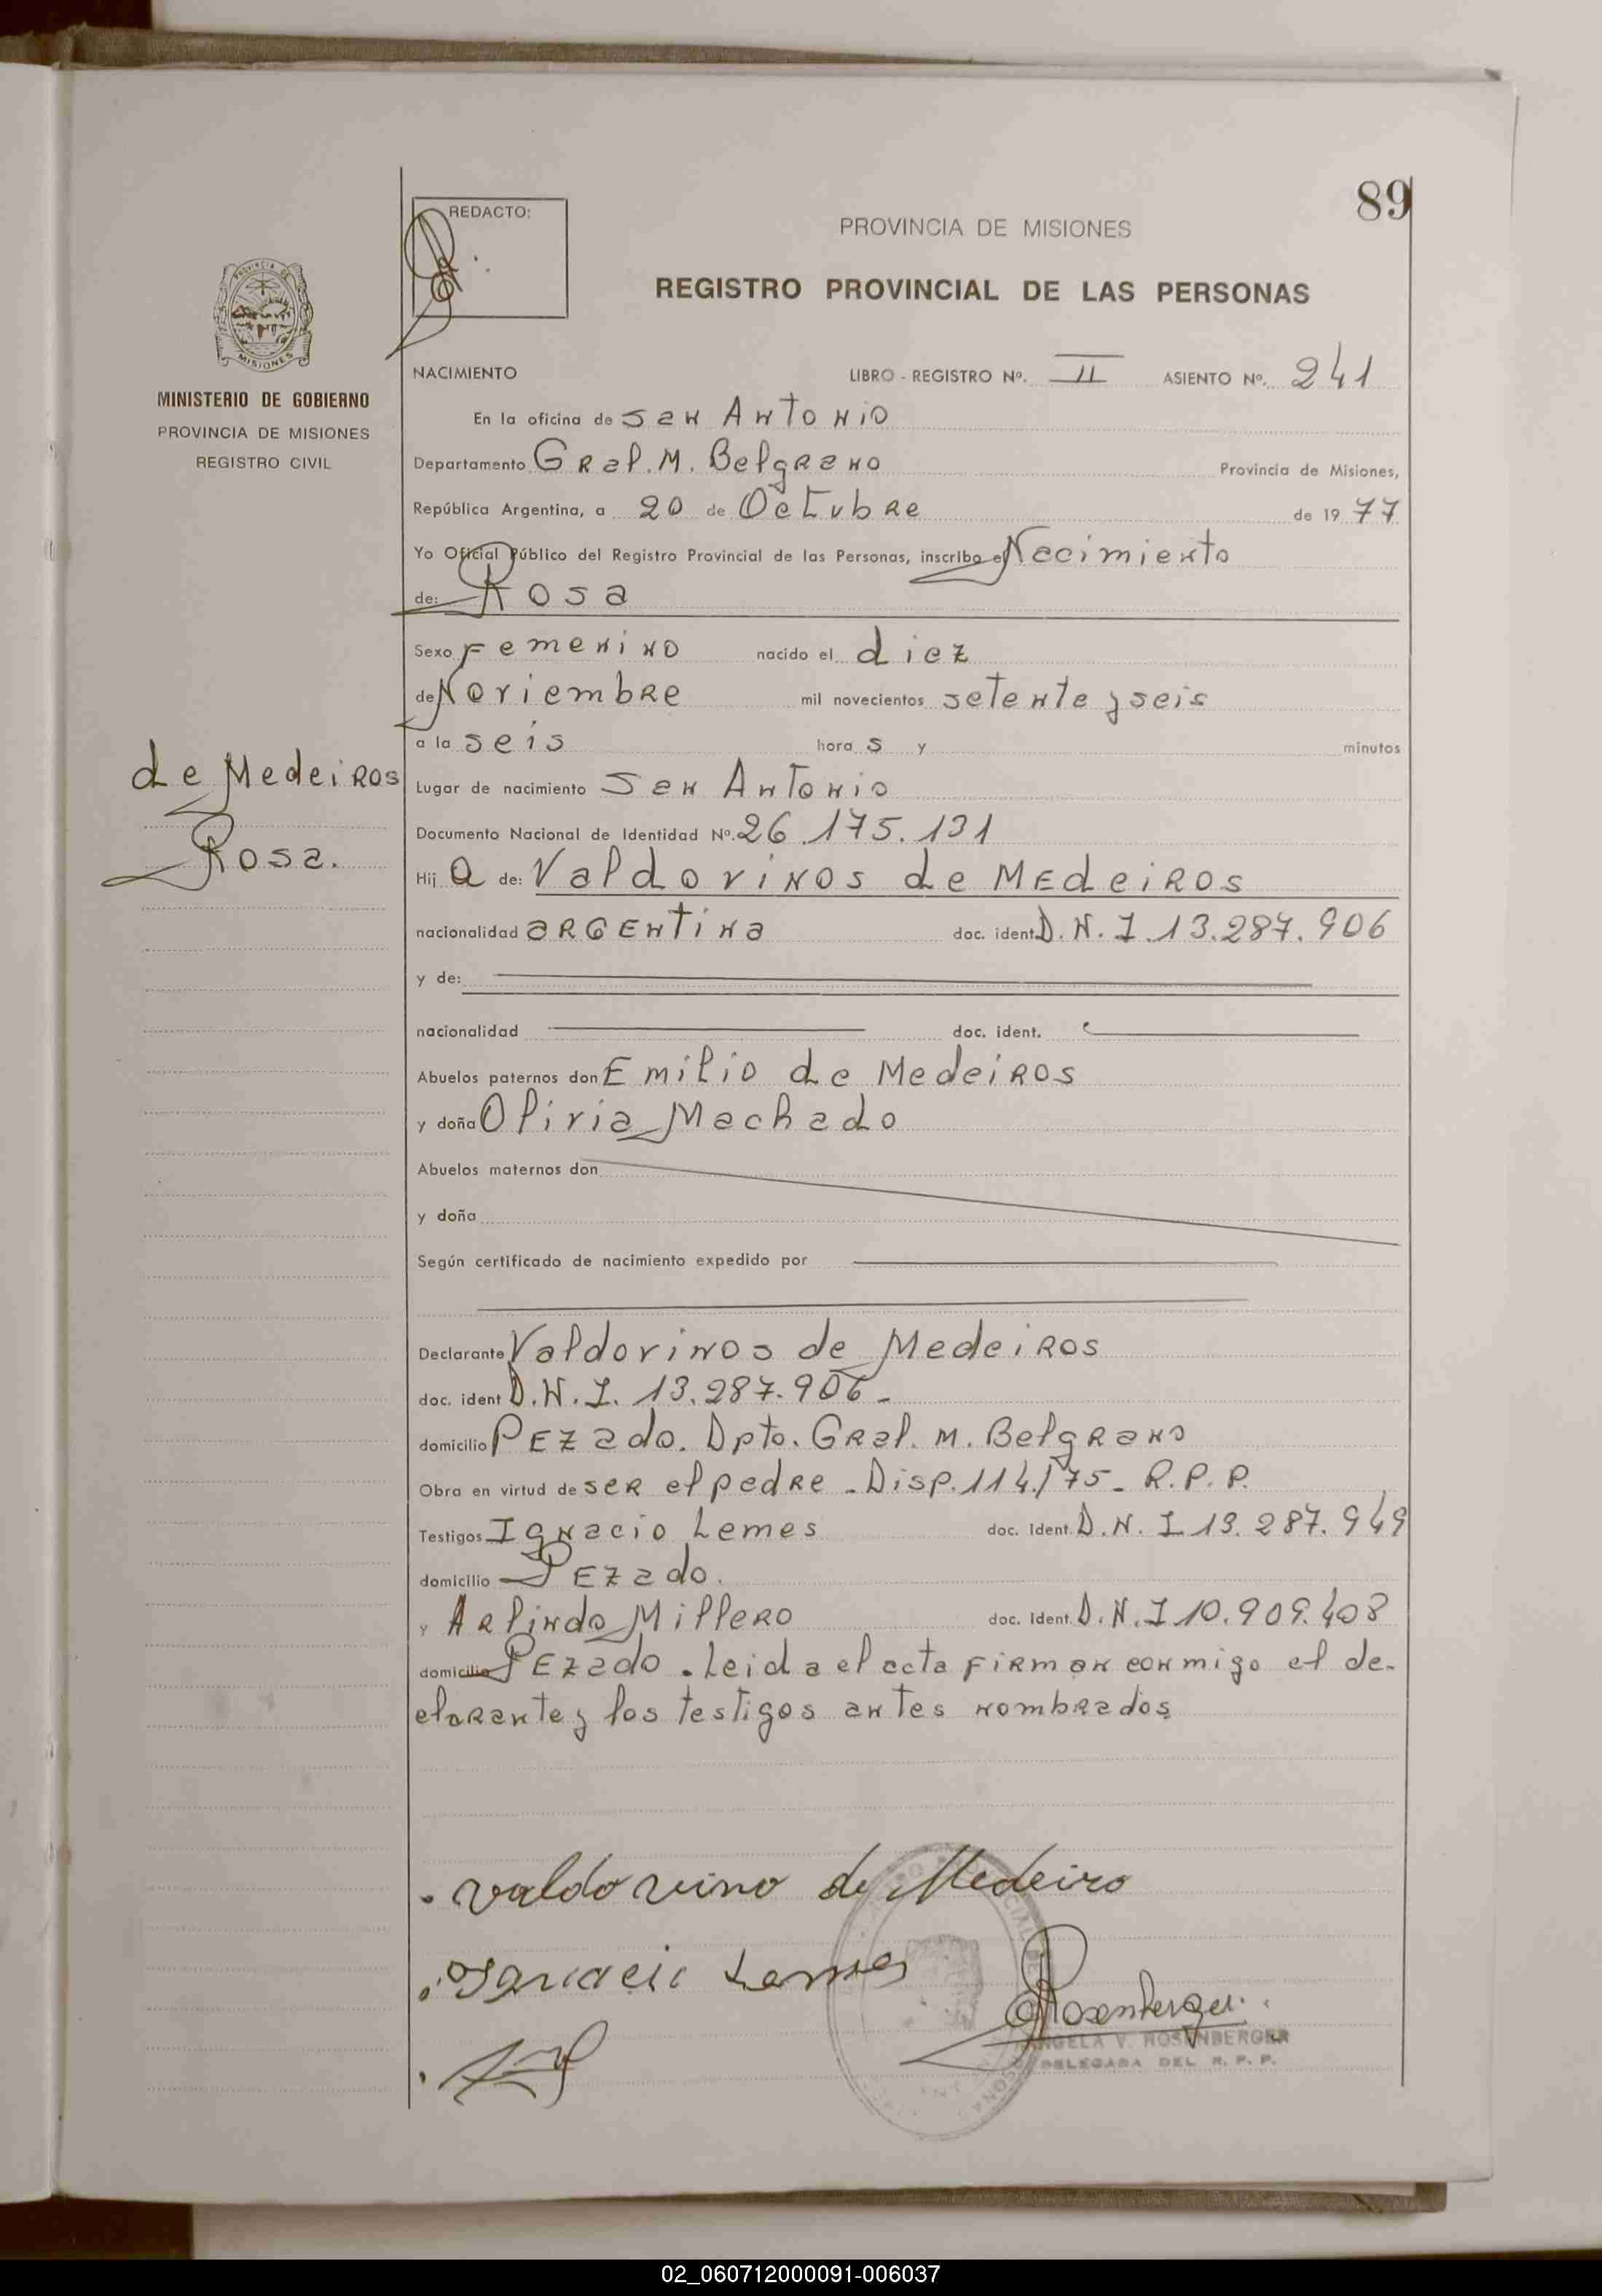 89
REDACTO:
PROVINCIA DE MISIONES
REGISTRO PROVINCIAL DE LAS PERSONAS
PROVINCIA DE
MISIONES
MINISTERIO DE GOBIERNO
PROVINCIA DE MISIONES
REGISTRO CIVIL
NACIMIENTO LIBRO - REGISTRO Nº. II ASIENTO Nº. 241
En la oficina de San Antonio
Departamento Gral. M. Belgrano Provincia de Misiones,
República Argentina, a 20 de Octubre de 19 77
Yo Oficial Público del Registro Provincial de las Personas, inscribo el Nacimiento
de: Rosa
Sexo Femenino nacido el diez
de Noviembre mil novecientos setenta y seis
a la seis hora s y minutos
de Medeiros
Rosa.
Lugar de nacimiento San Antonio
Documento Nacional de Identidad Nº. 26.175.131
Hij a de: Valdovinos de Medeiros
nacionalidad argentina doc. ident. D.N.I. 13.287.906
y de:
nacionalidad doc. ident.
Abuelos paternos don Emilio de Medeiros
y doña Oliria Machado
Abuelos maternos don
y doña
Según certificado de nacimiento expedido por
Declarante Valdovinos de Medeiros
doc. ident D.N.I. 13.287.906-
domicilio Pezado. Dpto. Gral. M. Belgrano
Obra en virtud de ser el padre - Disp. 114/75 - R.P.P.
Testigos Ignacio Lemes doc. Ident. D.N.I 13.287.949
domicilio Pezado.
y Arlindo Millero doc. Ident. D.N.I 10.909.408
domicilio Pezado. Leida el acta firman conmigo el de-
clarante y los testigos antes nombrados
Valdovino de Medeiro
Ignacio Lemes
Rosenberger
ANGELA V. ROSENBERGER
DELEGADA DEL R. P. P.
02_060712000091-006037